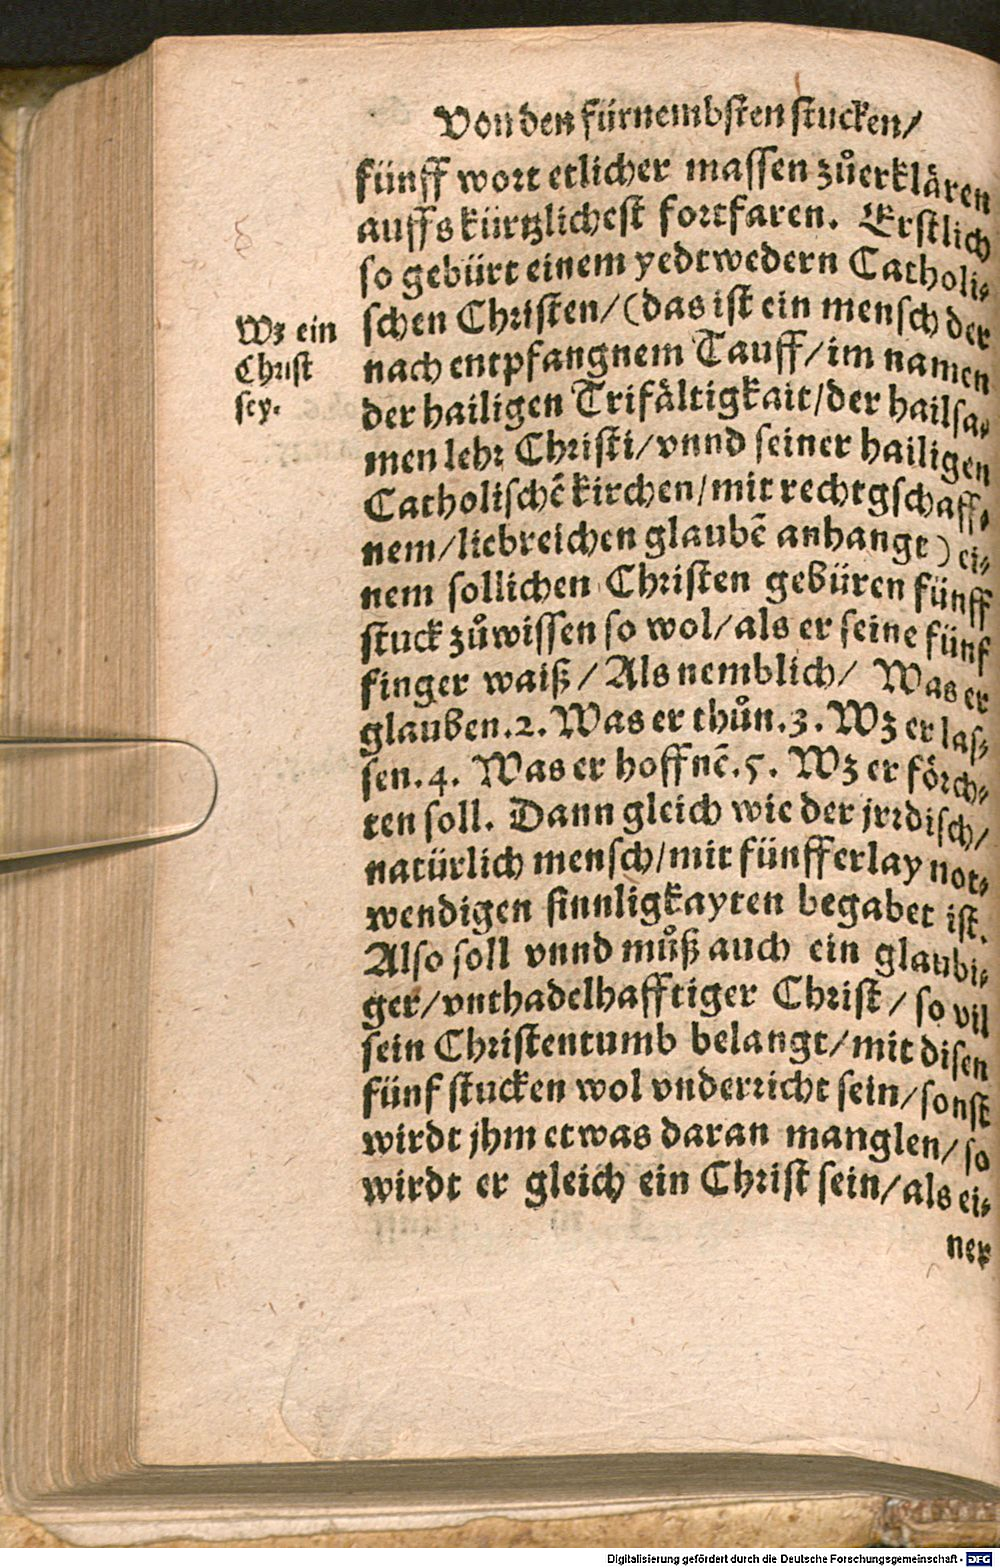 Von den fürnembsten stucken/
fünff wort etlicher massen zůerklären
auffs kürtzlichest fortfaren. Erstlich
so gebürt einem yedtwedern Catholi-
schen Christen/(das ist ein mensch der
nach entpfangnem Tauff/im namen
der hailigen Trifältigkait/der hailsa-
men lehr Christi/vnnd seiner hailigen
Catholischē kirchen/mit rechtgschaff-
nem/liebreichen glaubē anhangt) ei-
nem sollichen Christen gebüren fünff
stuck zůwissen so wol/als er seine fünf
finger waiß/Als nemblich/ Was er
glauben.2. Was er thůn.3. Wz er las-
sen.4. Was er hoffnē.5. Wz er förch-
ten soll. Dann gleich wie der jrrdisch/
natürlich mensch/mit fünfferlay not-
wendigen sinnligkayten begabet ist.
Also soll vnnd můß auch ein glaubi-
ger/vnthadelhafftiger Christ/so vil
sein Christentumb belangt/mit disen
fünf stucken wol vnderricht sein/sonst
wirdt jhm etwas daran manglen/so
wirdt er gleich ein Christ sein/als ei-
ner
Wz ein
Christ
sey.
Digitalisierung gefördert durch die Deutsche Forschungsgemeinschaft - DFG